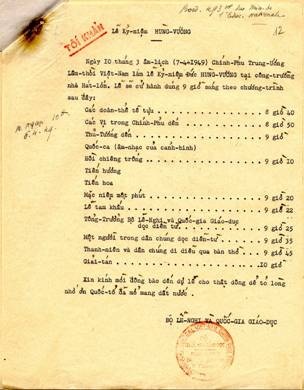 TỐI KHẨN
12
Lễ Kỷ-niệm HÙNG-VƯƠNG
Ngày 10 tháng 3 âm-lịch (7-4-1949) Chính-Phủ Trung-Ương
Lâm-thời Việt-Nam làm lễ Kỷ-niệm Đức HÙNG-VƯƠNG tại công-trường
nhà Hát-lớn. Lễ sẽ cử hành đúng 9 giờ sáng theo chương-trình
sau đây:
Các đoàn-thể tề tựu 8 giờ 40
Các Vị trong Chính-Phủ đến 8 giờ 50
Thủ-Tướng đến 9 giờ
Quốc-ca (âm-nhạc của canh-bình)
Nổi chiêng trống 9 giờ 10
Tiến hương
Tiến hoa
Mặc niệm một phút 9 giờ 20
Lễ tam khấu 9 giờ 22
Tổng-Trưởng Bộ Lễ-Nghi và Quốc-gia Giáo-dục
đọc diễn từ 9 giờ 25
Một người trong dân chúng đọc diễn-từ 9 giờ 35
Thanh-niên và dân chúng đi diễu qua bàn thờ 9 giờ 45
Giải-tán 10 giờ
Xin kính mời đồng bào đến dự lễ cho thật đông để tỏ lòng
nhớ ơn Quốc-tổ đã mở mang đất nước.
BỘ LỄ-NGHI VÀ QUỐC-GIA GIÁO-DỤC